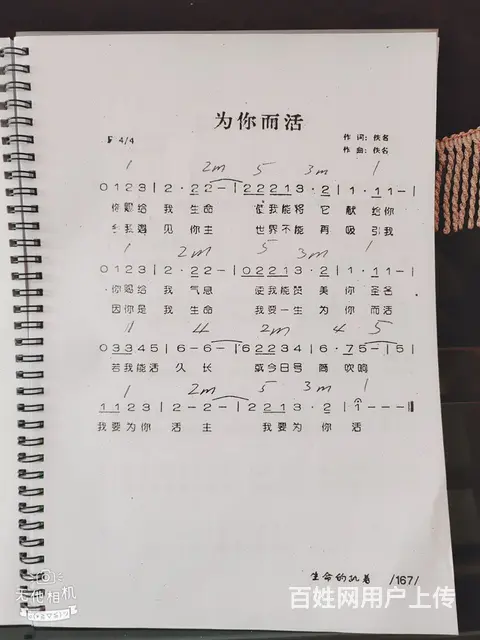 为你而活
F 4/4
作 词: 佚名
作 曲: 佚名
1 2m 5 3m 1
0 1 2 3 | 2 · 2 2 - | 2 2 2 1 3 · 2 | 1 · 1 1 - |
你赐给 我 生命 使我能将 它 献给你
令我遇 见 你主 世界不能 再 吸引我
1 2m 5 3m 1
0 1 2 3 | 2 · 2 2 - | 0 2 2 1 3 · 2 | 1 · 1 1 - |
你赐给 我 气息 使我能赞 美 你圣名
因你是 我 生命 我要一生 为 你而活
1 4 2m 4 5
0 3 3 4 5 | 6 - 6 - | 6 2 2 3 4 | 6 · 7 5 - | 5 |
若我能活 久 长 或今日号 吹鸣
1 2m 5 3m 1
1 1 2 3 | 2 - 2 - | 2 2 1 3 · 2 | 1 - - - ‖
我要为你 活 主 我要为 你 活
生命的执着 /167/
无他相机
百姓网用户上传